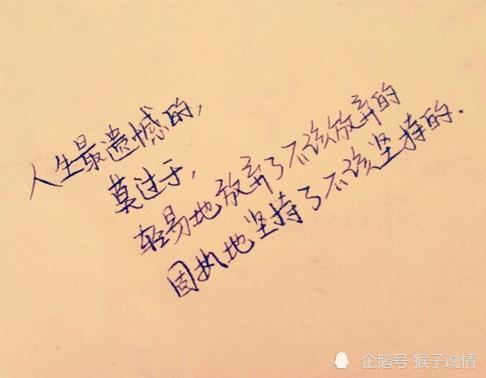 人生最遗憾的,
莫过于,
轻易地放弃了不该放弃的
固执地坚持了不该坚持的.
企鹅号 猴子说情